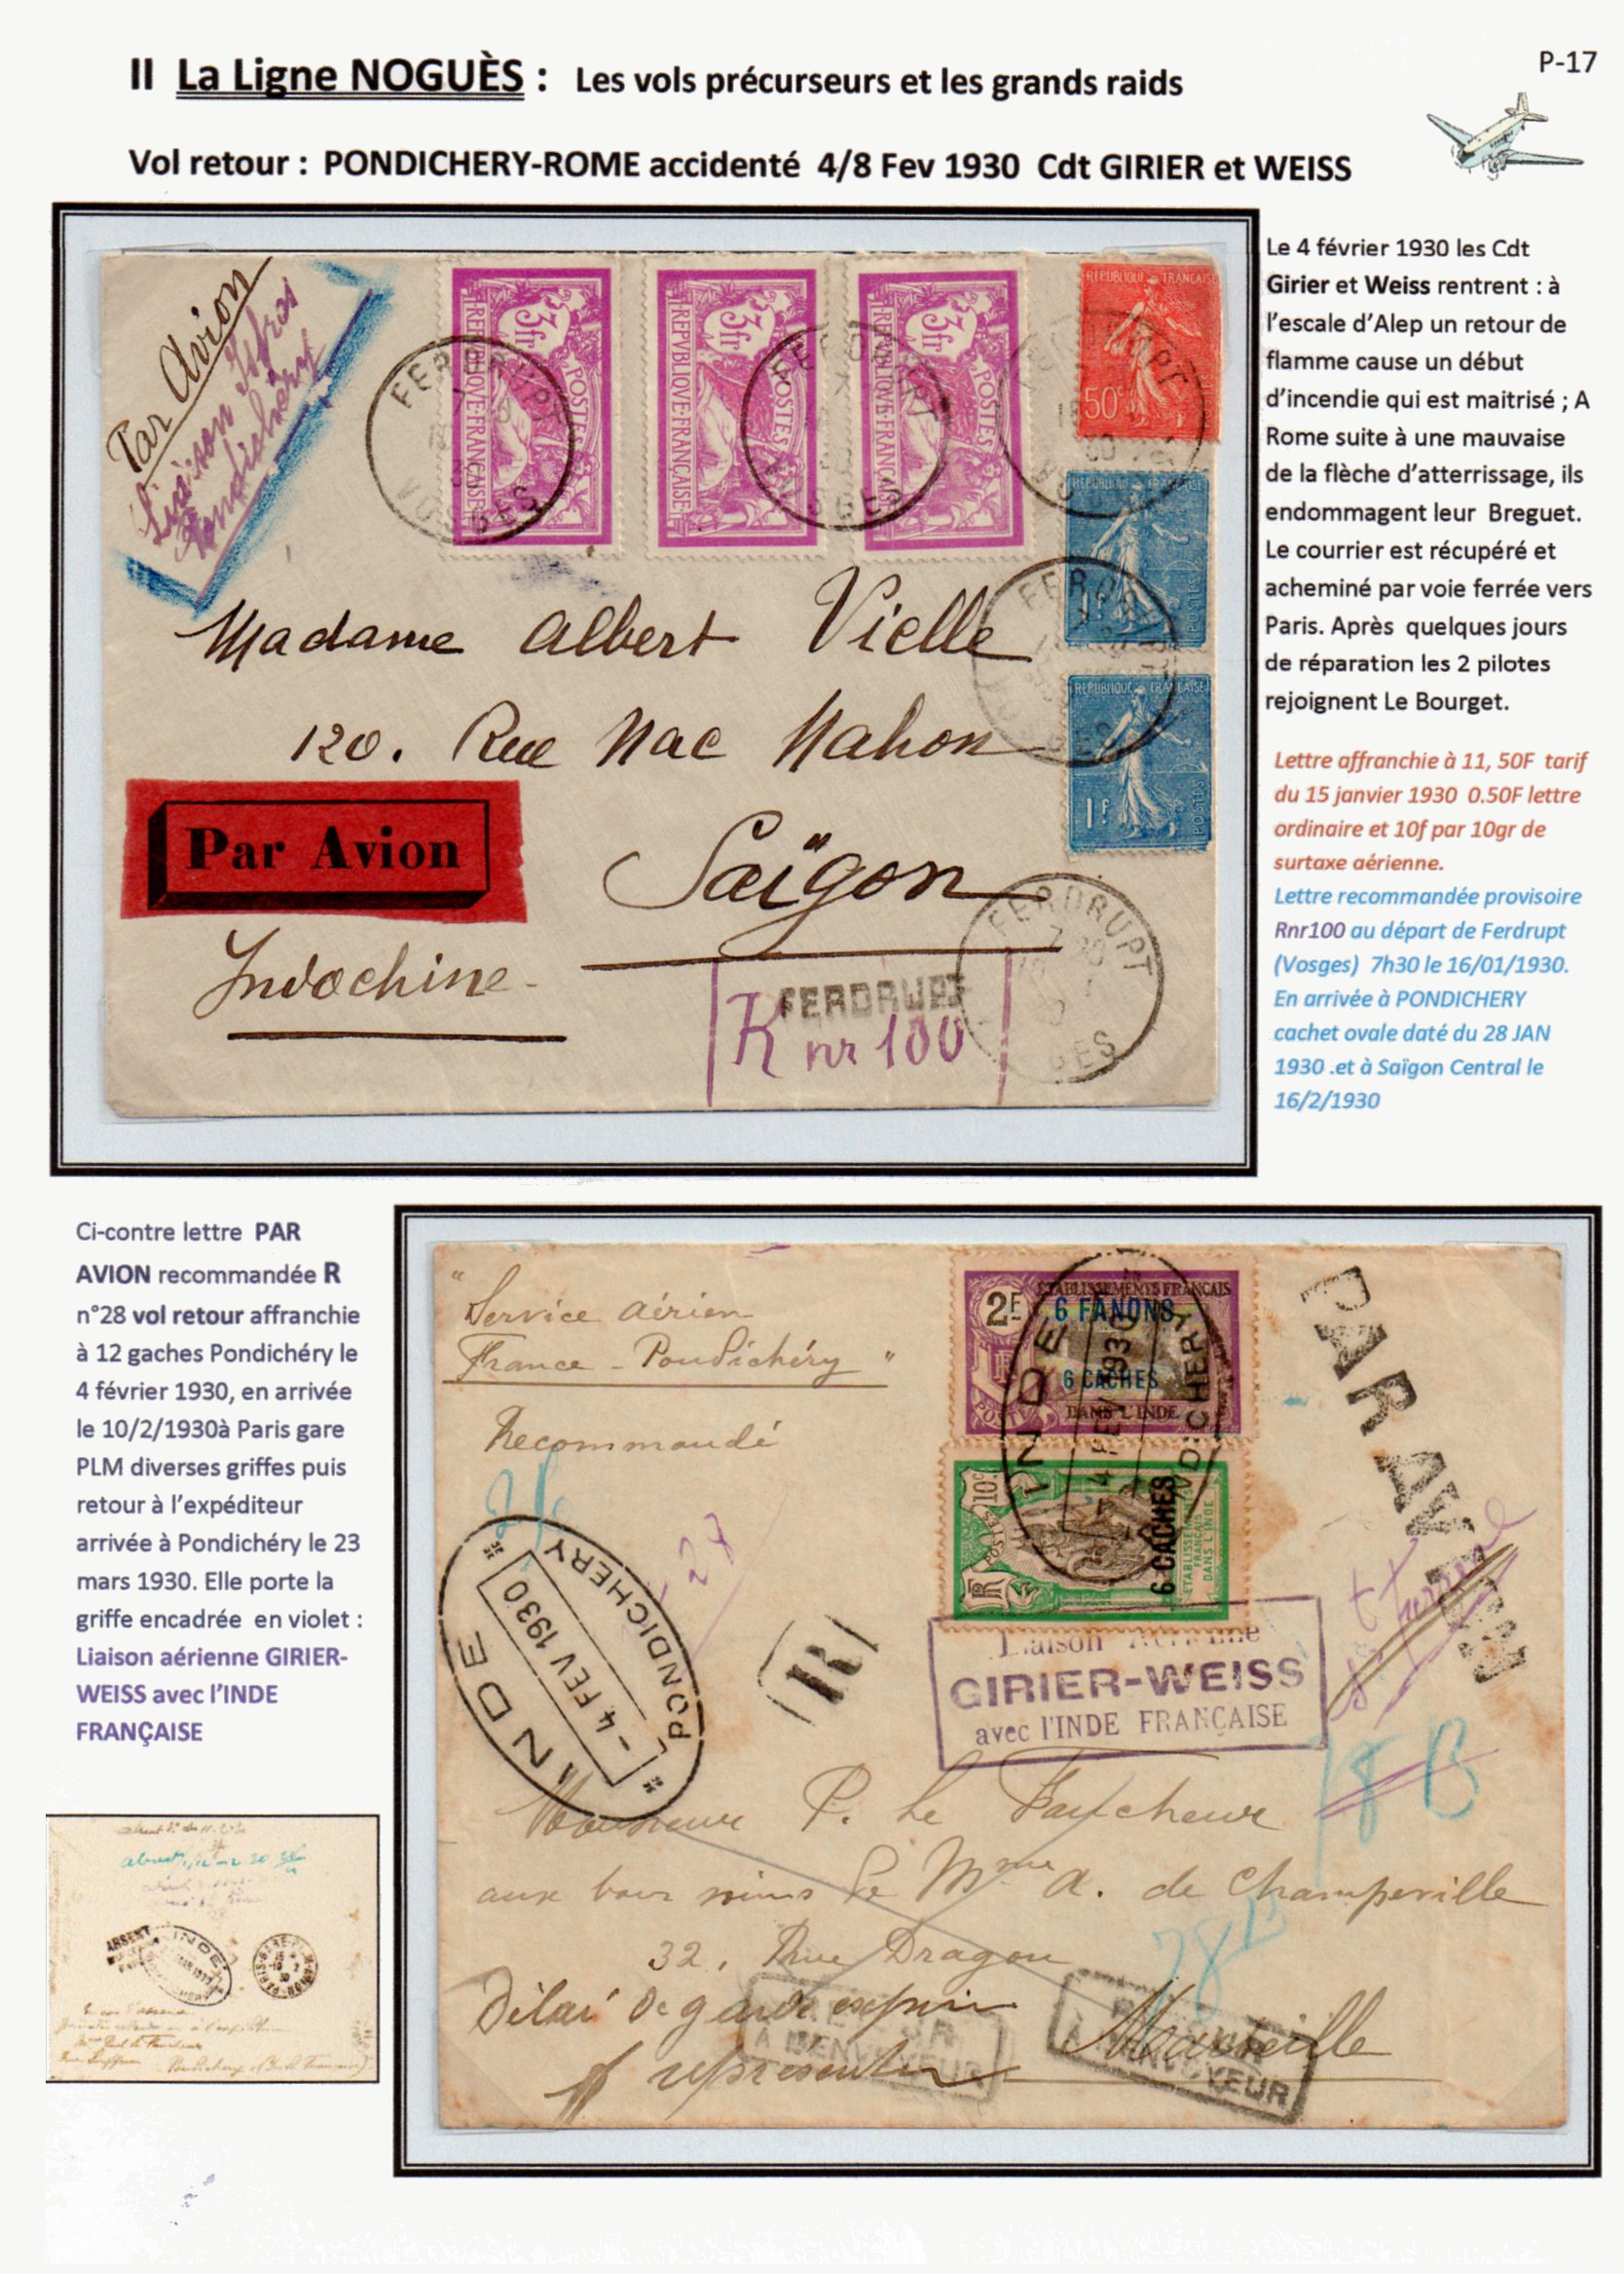 P-17
II La Ligne NOGUÈS : Les vols précurseurs et les grands raids
Vol retour : PONDICHERY-ROME accidenté 4/8 Fev 1930 Cdt GIRIER et WEISS
Par Avion
Liaison
Pondichéry
3fr
POSTES
REPVBLIQVE FRANÇAISE
3fr
POSTES
REPVBLIQVE FRANÇAISE
3fr
POSTES
REPVBLIQVE FRANÇAISE
REPUBLIQUE FRANÇAISE
50c
REPUBLIQUE FRANÇAISE
1F
POSTES
REPUBLIQUE FRANÇAISE
1F
POSTES
FERDRUPT
VOSGES
Madame Albert Vielle
120. Rue Mac Mahon
Par Avion
Saïgon
Indochine-
FERDRUPT
R nr 100
FERDRUPT
Le 4 février 1930 les Cdt
Girier et Weiss rentrent : à
l'escale d'Alep un retour de
flamme cause un début
d'incendie qui est maitrisé ; A
Rome suite à une mauvaise
de la flèche d'atterrissage, ils
endommagent leur Breguet.
Le courrier est récupéré et
acheminé par voie ferrée vers
Paris. Après quelques jours
de réparation les 2 pilotes
rejoignent Le Bourget.
Lettre affranchie à 11, 50F tarif
du 15 janvier 1930 0.50F lettre
ordinaire et 10f par 10gr de
surtaxe aérienne.
Lettre recommandée provisoire
Rnr100 au départ de Ferdrupt
(Vosges) 7h30 le 16/01/1930.
En arrivée à PONDICHERY
cachet ovale daté du 28 JAN
1930 .et à Saïgon Central le
16/2/1930
Ci-contre lettre PAR
AVION recommandée R
n°28 vol retour affranchie
à 12 gaches Pondichéry le
4 février 1930, en arrivée
le 10/2/1930à Paris gare
PLM diverses griffes puis
retour à l'expéditeur
arrivée à Pondichéry le 23
mars 1930. Elle porte la
griffe encadrée en violet :
Liaison aérienne GIRIER-
WEISS avec l'INDE
FRANÇAISE
"Service aérien
France - Pondichéry"
Recommandé
ETABLISSEMENTS FRANÇAIS
2F
6 FANONS
6 CACHES
POSTES
DANS L'INDE
10c
POSTES
6 CACHES
ETABLISSEMENTS
FRANÇAIS
DANS L'INDE
INDE
4 FEV 1930
PONDICHERY
PAR AVION
INDE
- 4 FEV 1930
PONDICHERY
R
Liaison Aérienne
GIRIER-WEISS
avec l'INDE FRANÇAISE
18 B
Monsieur P. Le Faucheur
aux bons soins de Mme A. de Champeville
32, Rue Dragon
Marseille
Délai de garde expiré
représenter
RETOUR
A L'ENVOYEUR
RETOUR
A L'ENVOYEUR
ABSENT
INDE